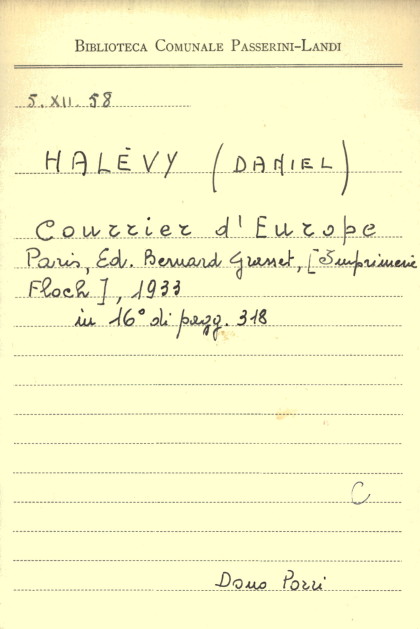 BIBLIOTECA COMUNALE PASSERINI-LANDI
5. XII. 58
HALÉVY (DANIEL)
Courrier d'Europe
Paris, Ed. Bernard Grasset, [Imprimerie
Floch], 1933
in 16° di pagg. 318
C
Dono Porri